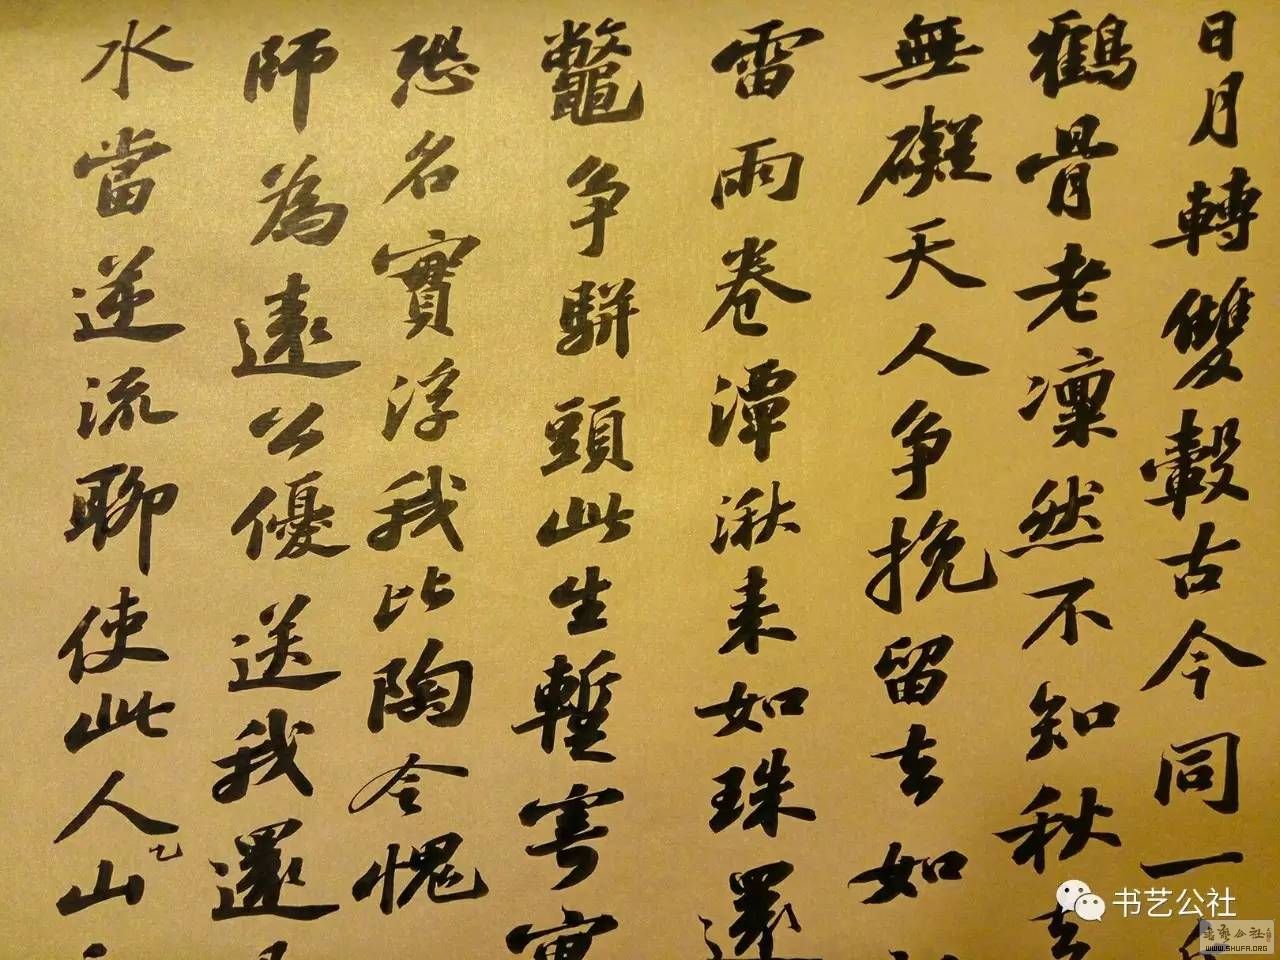 日月轉雙轂古今同一
鶴骨老凜然不知秋去
無礙天人争挽留去如
雷雨卷潭湫来如珠還
鼈争駢頭此生暫寄寓
恐名實浮我比陶令愧
師為遠公優送我還
水當逆流聊使此人山
书艺公社
書藝公社
WWW.SHUFA.ORG